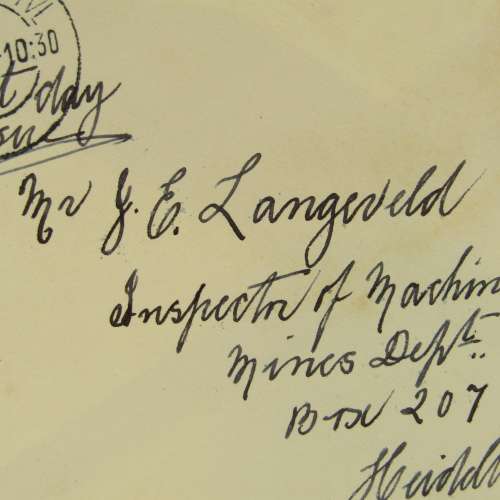 10:30
t day
sue
Mr J. E. Langeveld
Inspector of Machin
Mines Dept.
Box 207
Heidel